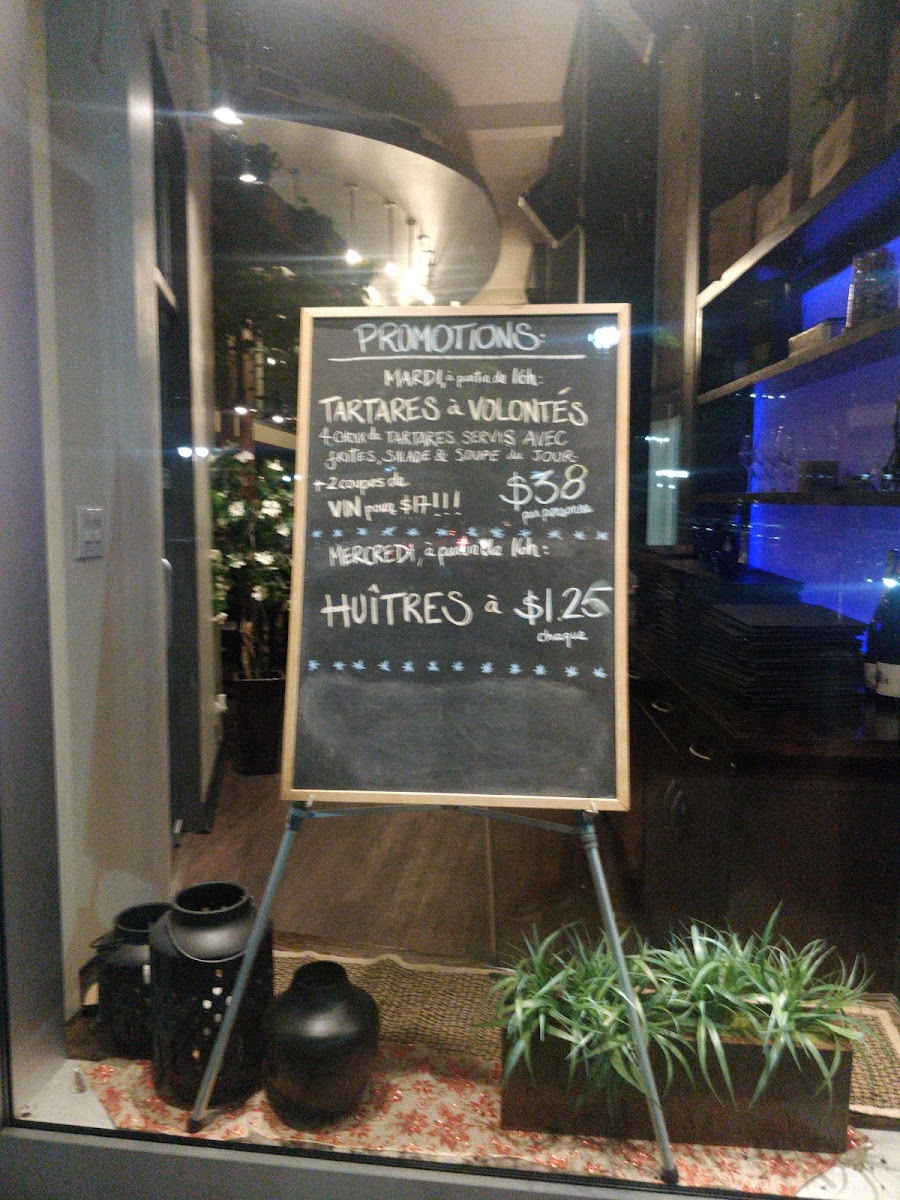 PROMOTIONS:
MARDI, à partir de 16h:
TARTARES à VOLONTÉS
4 choix de TARTARES SERVIS AVEC
frites, SALADE & SOUPE du JOUR.
+2 coupes de
VIN pour $17!!!
$38
par personne
MERCREDI, à partir de 16h:
HUÎTRES à $1.25
chaque